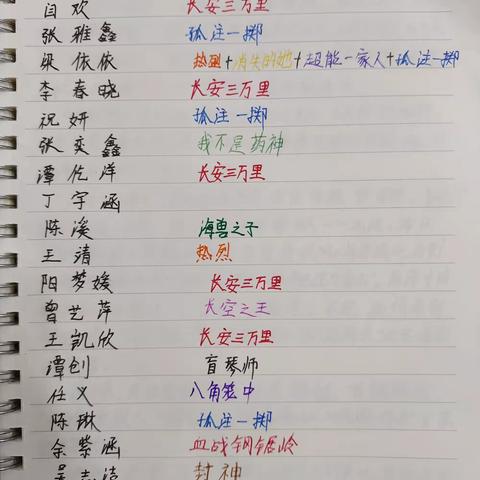 闫欢 长安三万里
张雅鑫 孤注一掷
梁依依 热烈+消失的她+超能一家人+孤注一掷
李春晓 长安三万里
祝妍 孤注一掷
张奕鑫 我不是药神
谭伦洋 长安三万里
丁宇涵
陈溪 海兽之子
王清 热烈
阳梦媛 长安三万里
曾艺萍 长空之王
王凯欣 长安三万里
谭创 盲琴师
任义 八角笼中
陈琳 孤注一掷
余紫涵 血战钢锯岭
封神